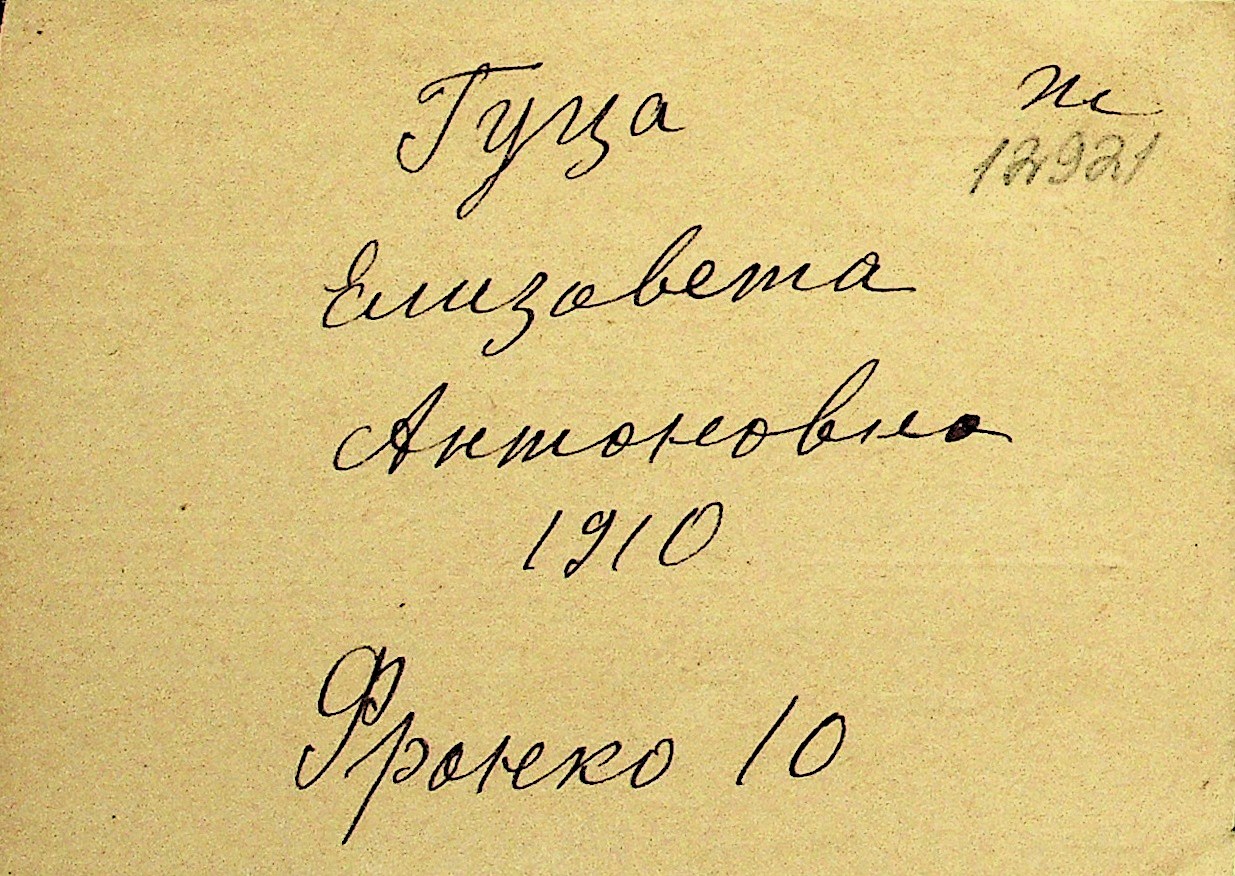 Гуца
12921
Елизовета
Антоновна
1910
Франко 10